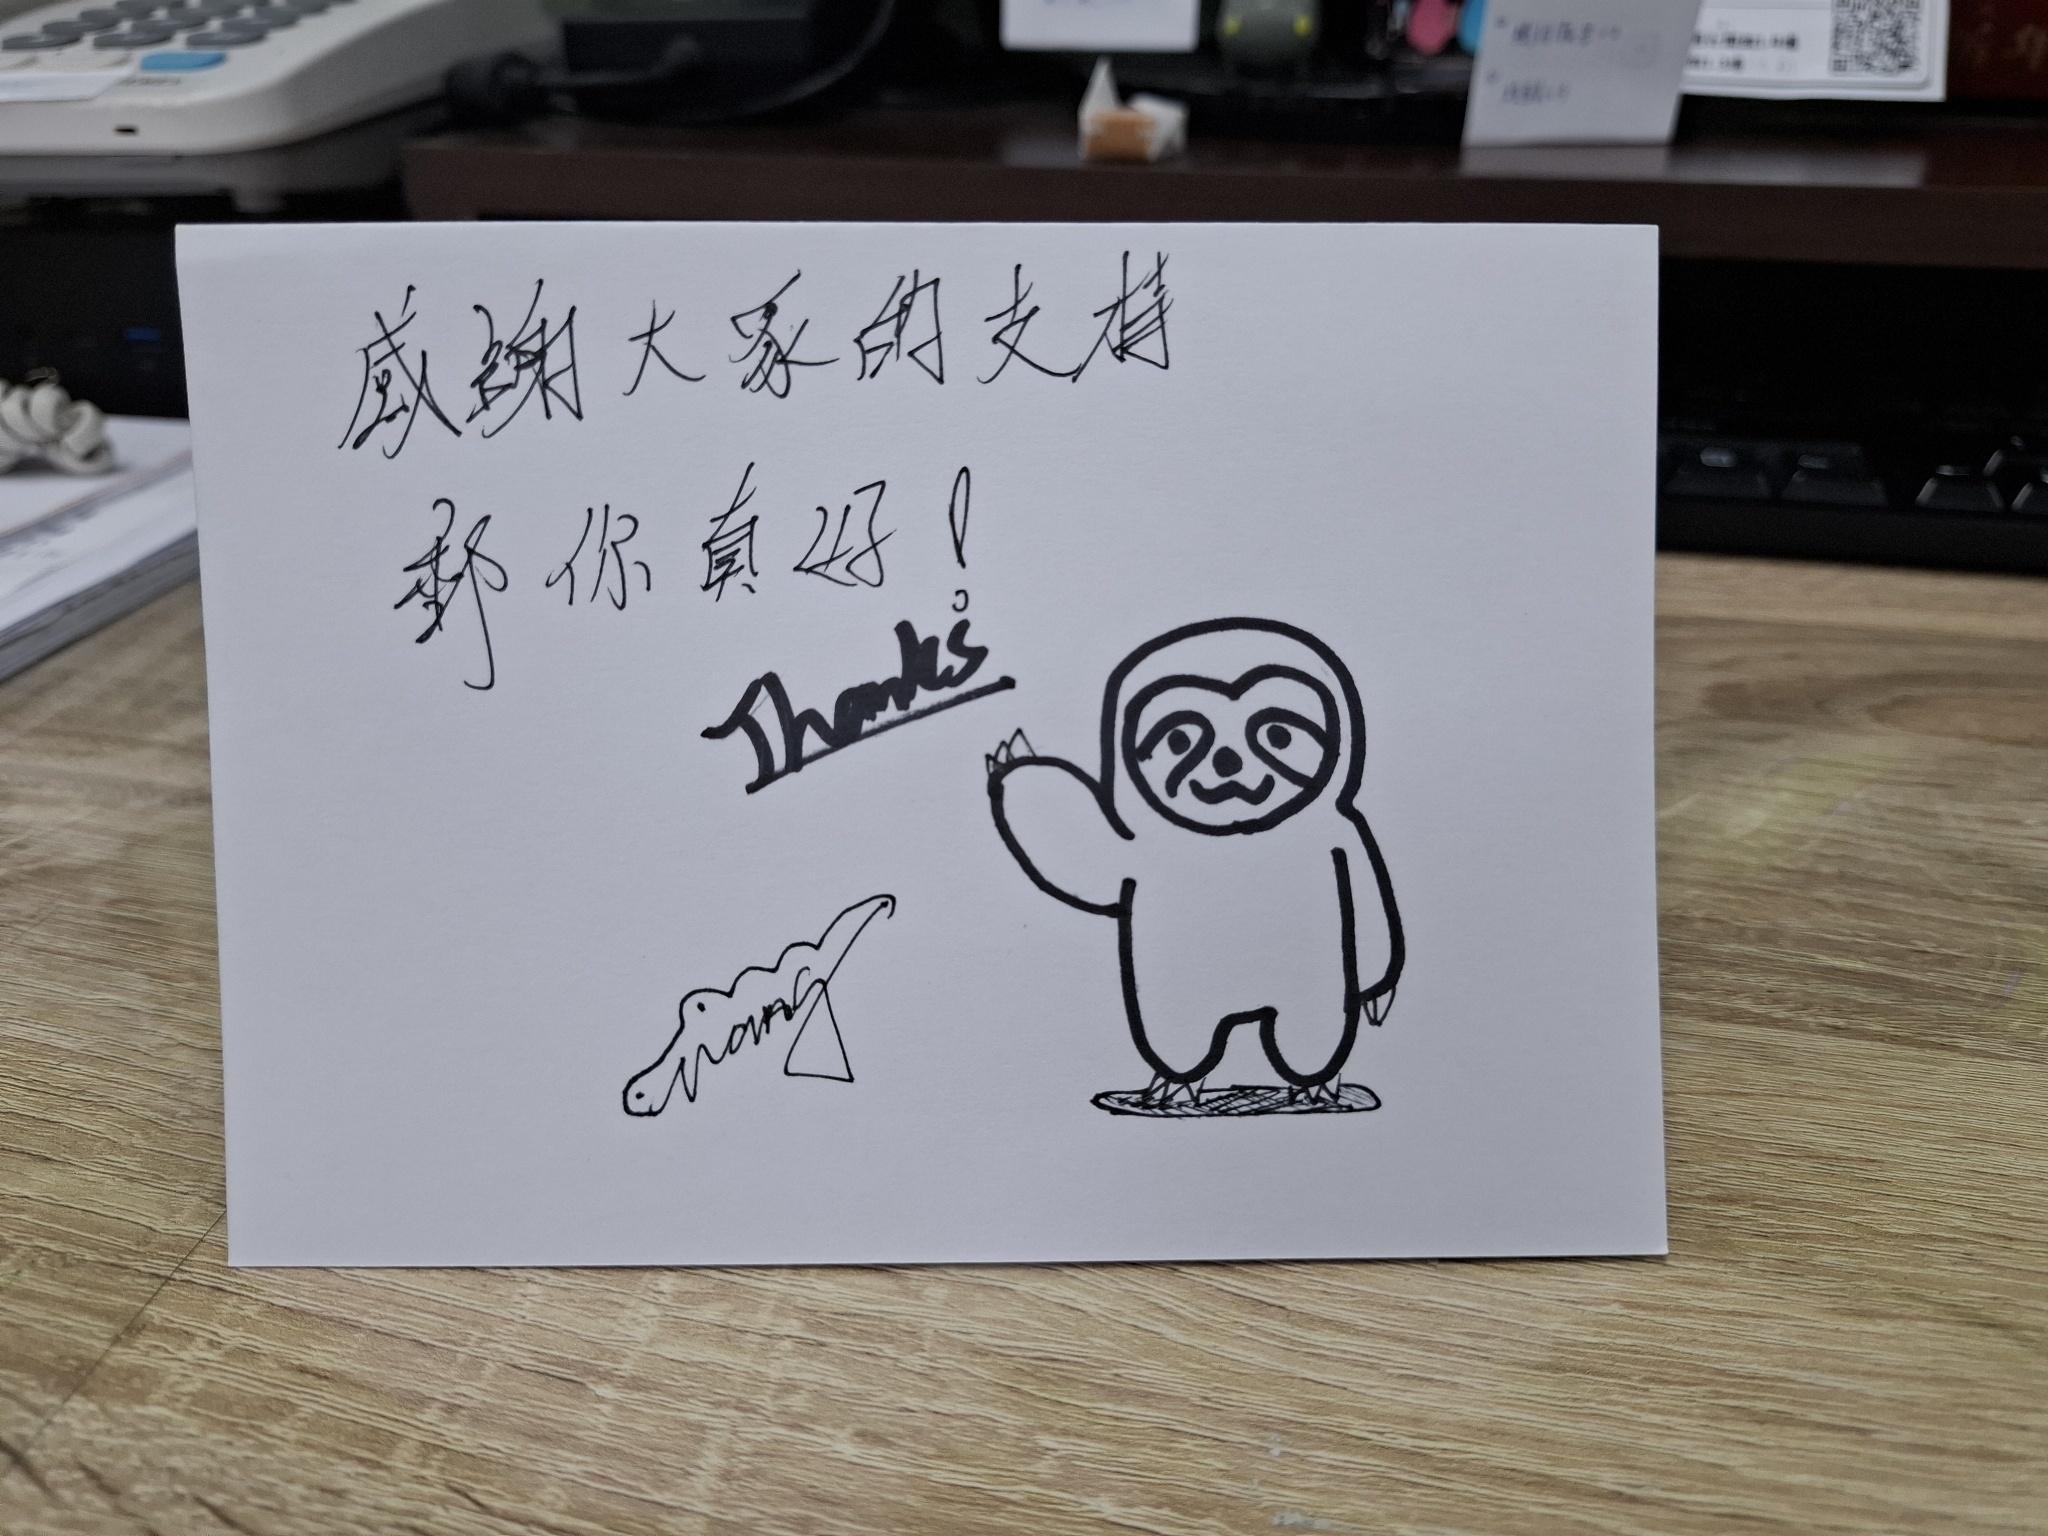 感謝大家的支持
郵你真好!
Thanks